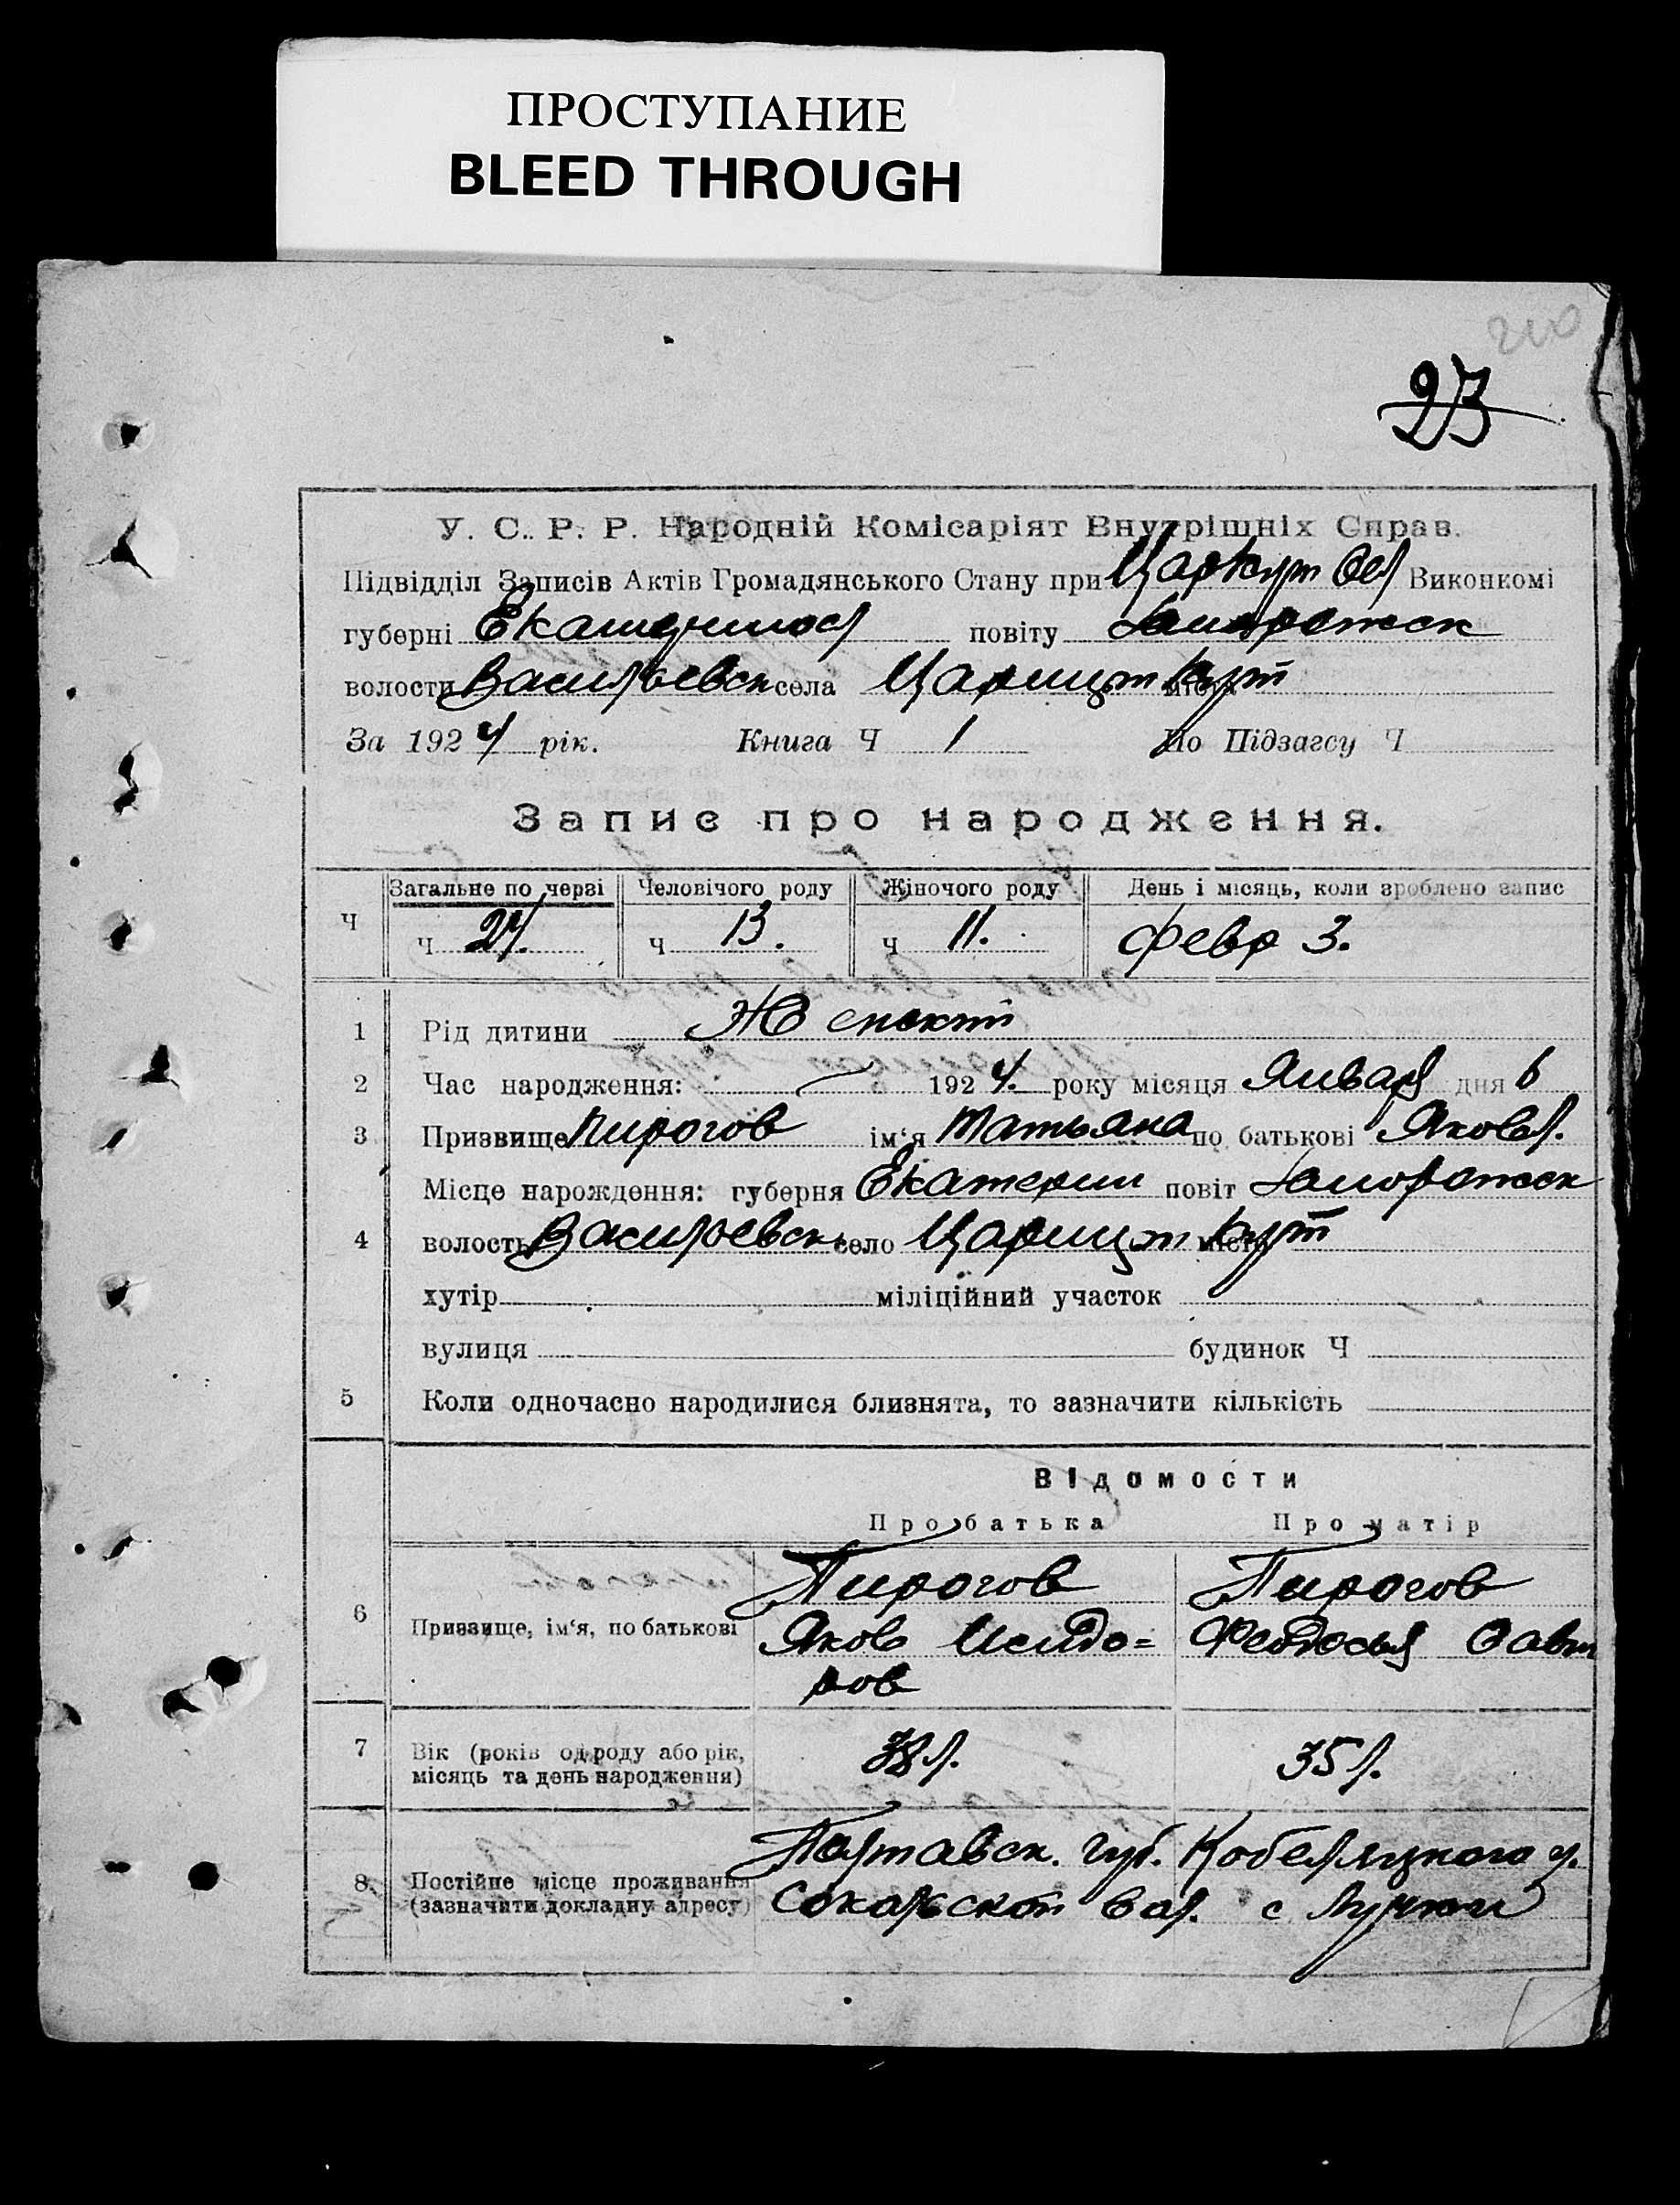 ПРОСТУПАНИЕ
BLEED THROUGH
210
23
У. С. Р. Р. Народній Комісаріят Внутрішніх Справ.
Підвідділ Записів Актів Громадянського Стану при Царкут Сел Виконкомі
губерні Екатериносл повіту Запорожск
волости Васильевск села Царицын Кут міста
За 1924 рік. Книга Ч 1 По Підзагсу Ч
Запис про народження.
Ч Загальне по черзі Человічого роду Жіночого роду День і місяць, коли зроблено запис
Ч 24. Ч 13. Ч 11. Февр 3.
1 Рід дитини Женский
2 Час народження: 1924. року місяця Января дня 6
3 Призвище Пирогов ім‘я Татьяна по батькові Яковл.
Місце нарождення: губерня Екатерин повіт Запорожск
4 волость Васильевск село Царицын Кут місто
хутір міліційний участок
вулиця будинок Ч
5 Коли одночасно народилися близнята, то зазначити кількість
Відомости
Про батька Про матір
Пирогов Пирогов
6 Призвище, ім‘я, по батькові Яков Исидо= Феодосья Савт
ров
7 Вік (років од роду або рік, 38 л. 35 л.
місяць та день народження)
Полтавск. губ. Кобеляцкого у.
8 Постійне місце проживання
(зазначити докладну адресу) Сокольской вол. с Лучки